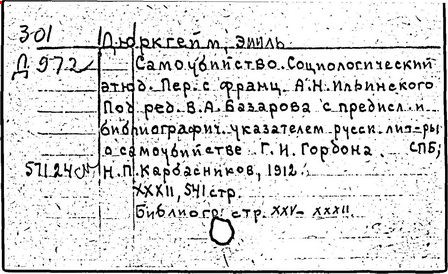 301
Дюркгейм, Эмиль
Д 972
Самоубийство. Социологический
этюд. Пер. с франц. А.Н. Ильинского
Под ред. В.А. Базарова с предисл. и
библиографич. указателем русск. лит-ры
о самоубийстве Г.И. Гордона. СПБ;
57124 Н.П. Карбасников, 1912.
XXXII, 541 стр.
Библиогр: стр. XXV-XXXII